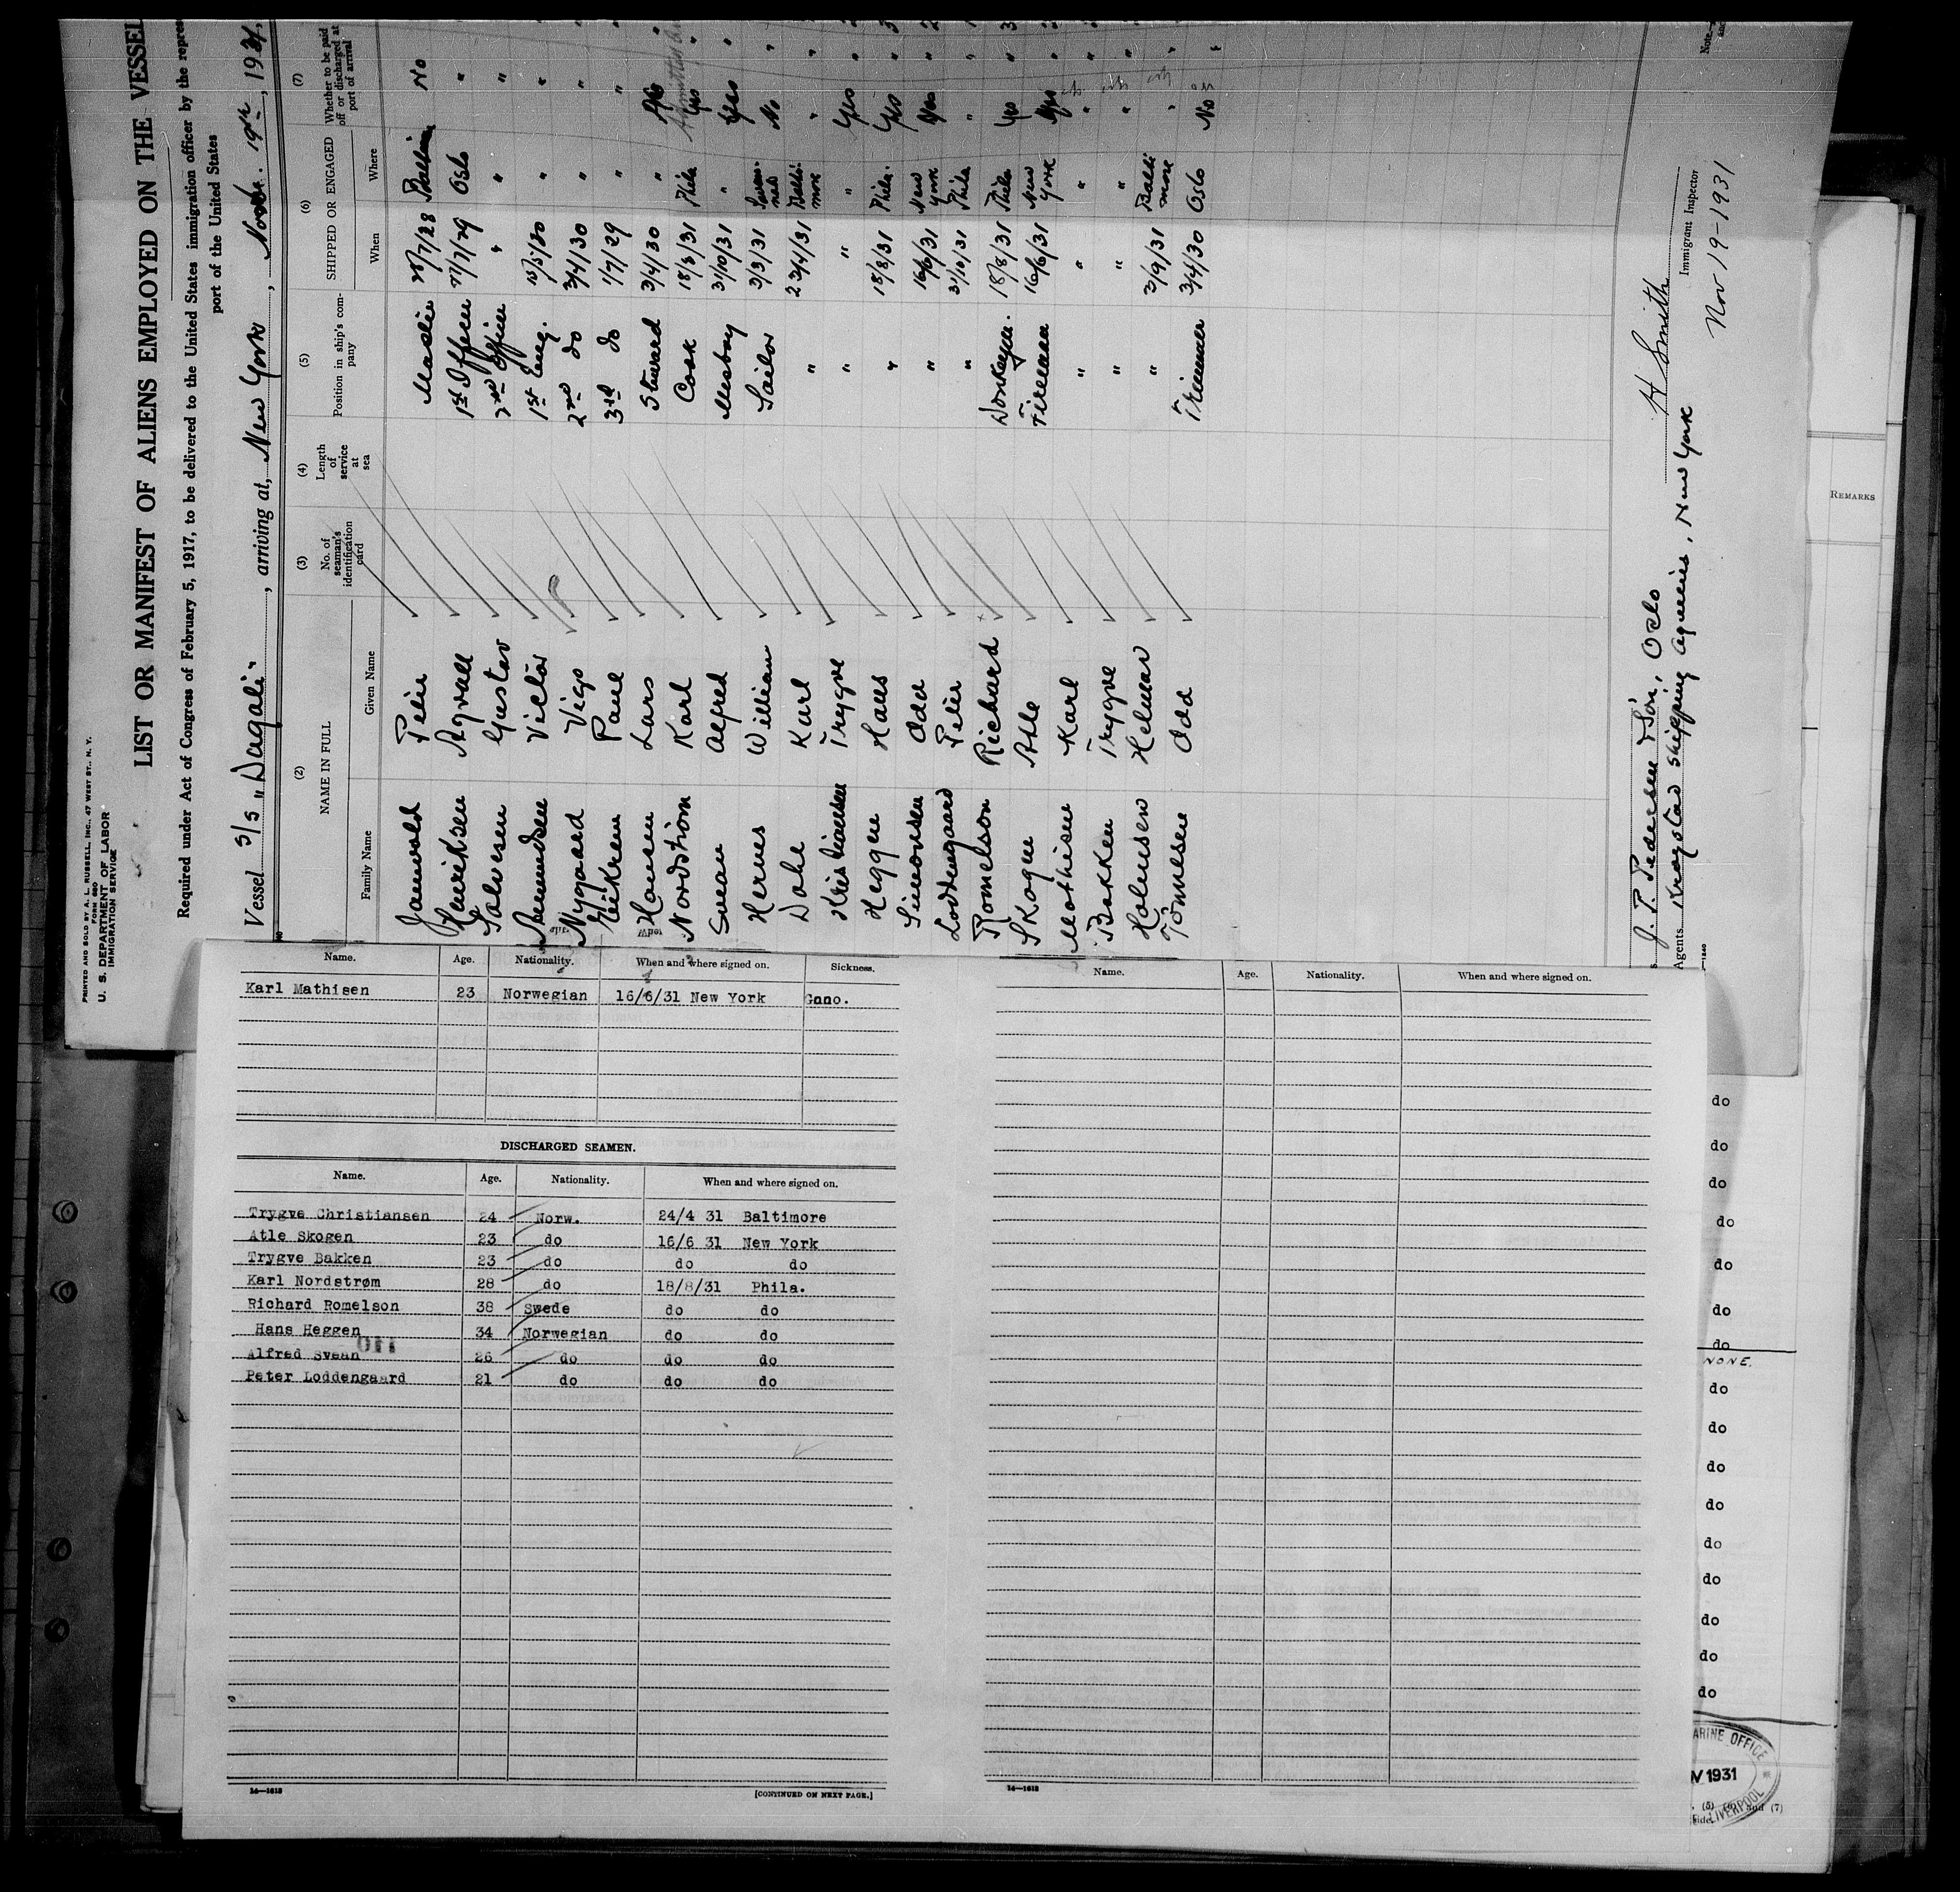 PRINTED AND SOLD BY A. L. RUSSELL, INC., 47 WEST ST., N. Y.
FORM 680
U. S. DEPARTMENT OF LABOR
IMMIGRATION SERVICE
LIST OR MANIFEST OF ALIENS EMPLOYED ON THE VESSEL
Required under Act of Congress of February 5, 1917, to be delivered to the United States immigration officer by the repre
port of the United States
Vessel S/S "Dagali", arriving at, New York, Novbr. 19th, 1931
(2) (3) (4) (5) (6) (7)
NAME IN FULL No. of seaman's identification card Length of service at sea Position in ship's company SHIPPED OR ENGAGED Whether to be paid off or discharged at port of arrival
Family Name Given Name When Where
Jannvold Peter Master 28/7/28 Baltimore No
Henriksen Agvall 1st Officer 27/7/29 Oslo "
Salvesen Gustav 2nd Officer " " "
Amundsen Victor 1st Eng. 15/5/30 " "
Nygaard Vigo 2nd do 3/4/30 " "
Eikrem Paul 3rd do 1/7/29 " "
Hansen Lars Steward 3/4/30 "
Nordstrom Karl Cook 18/8/31 Phila Yes
Svean Alfred Messboy 31/10/31 " Yes
Hernes William Sailor 3/3/31 Savannah No
Dahl Karl " 23/4/31 Baltimore "
Kristiansen Trygve " " " Yes
Heggen Hans " 18/8/31 Phila. Yes
Simonsen Odd " 16/6/31 New York Yes
Loddengaard Peter " 31/10/31 Phila "
Romelson Richard Donkeyman 18/8/31 Phila Yes
Skogen Atle Fireman 16/6/31 New York Yes
Mathisen Karl " " " "
Bakken Trygve " " " "
Holmsen Helmar " 2/9/31 Baltimore "
Tonnesen Odd Trimmer 3/4/30 Oslo No
J. P. Pedersen & Són, Oslo
Agents Kragstad Shipping Agencies, New York
H Smith
Immigrant Inspector
Nov 19-1931
REMARKS
Name. Age. Nationality. When and where signed on. Sickness.
Karl Mathisen 23 Norwegian 16/6/31 New York Gono.
DISCHARGED SEAMEN.
Name. Age. Nationality. When and where signed on.
Trygve Christiansen 24 Norw. 24/4 31 Baltimore
Atle Skogen 23 do 16/6 31 New York
Trygve Bakken 23 do do do
Karl Nordstrøm 28 do 18/8/31 Phila.
Richard Romelson 38 Swede do do
Hans Heggen 34 Norwegian do do
Alfred Svean 26 do do do
Peter Loddengaard 21 do do do
14—1618
[CONTINUED ON NEXT PAGE.]
Name. Age. Nationality. When and where signed on.
14—1618
do
do
do
do
do
do
do
NONE.
do
do
do
do
do
do
do
do
do
ARINE OFFICE
V 1931
LIVERPOOL
, (5) (6) and (7)